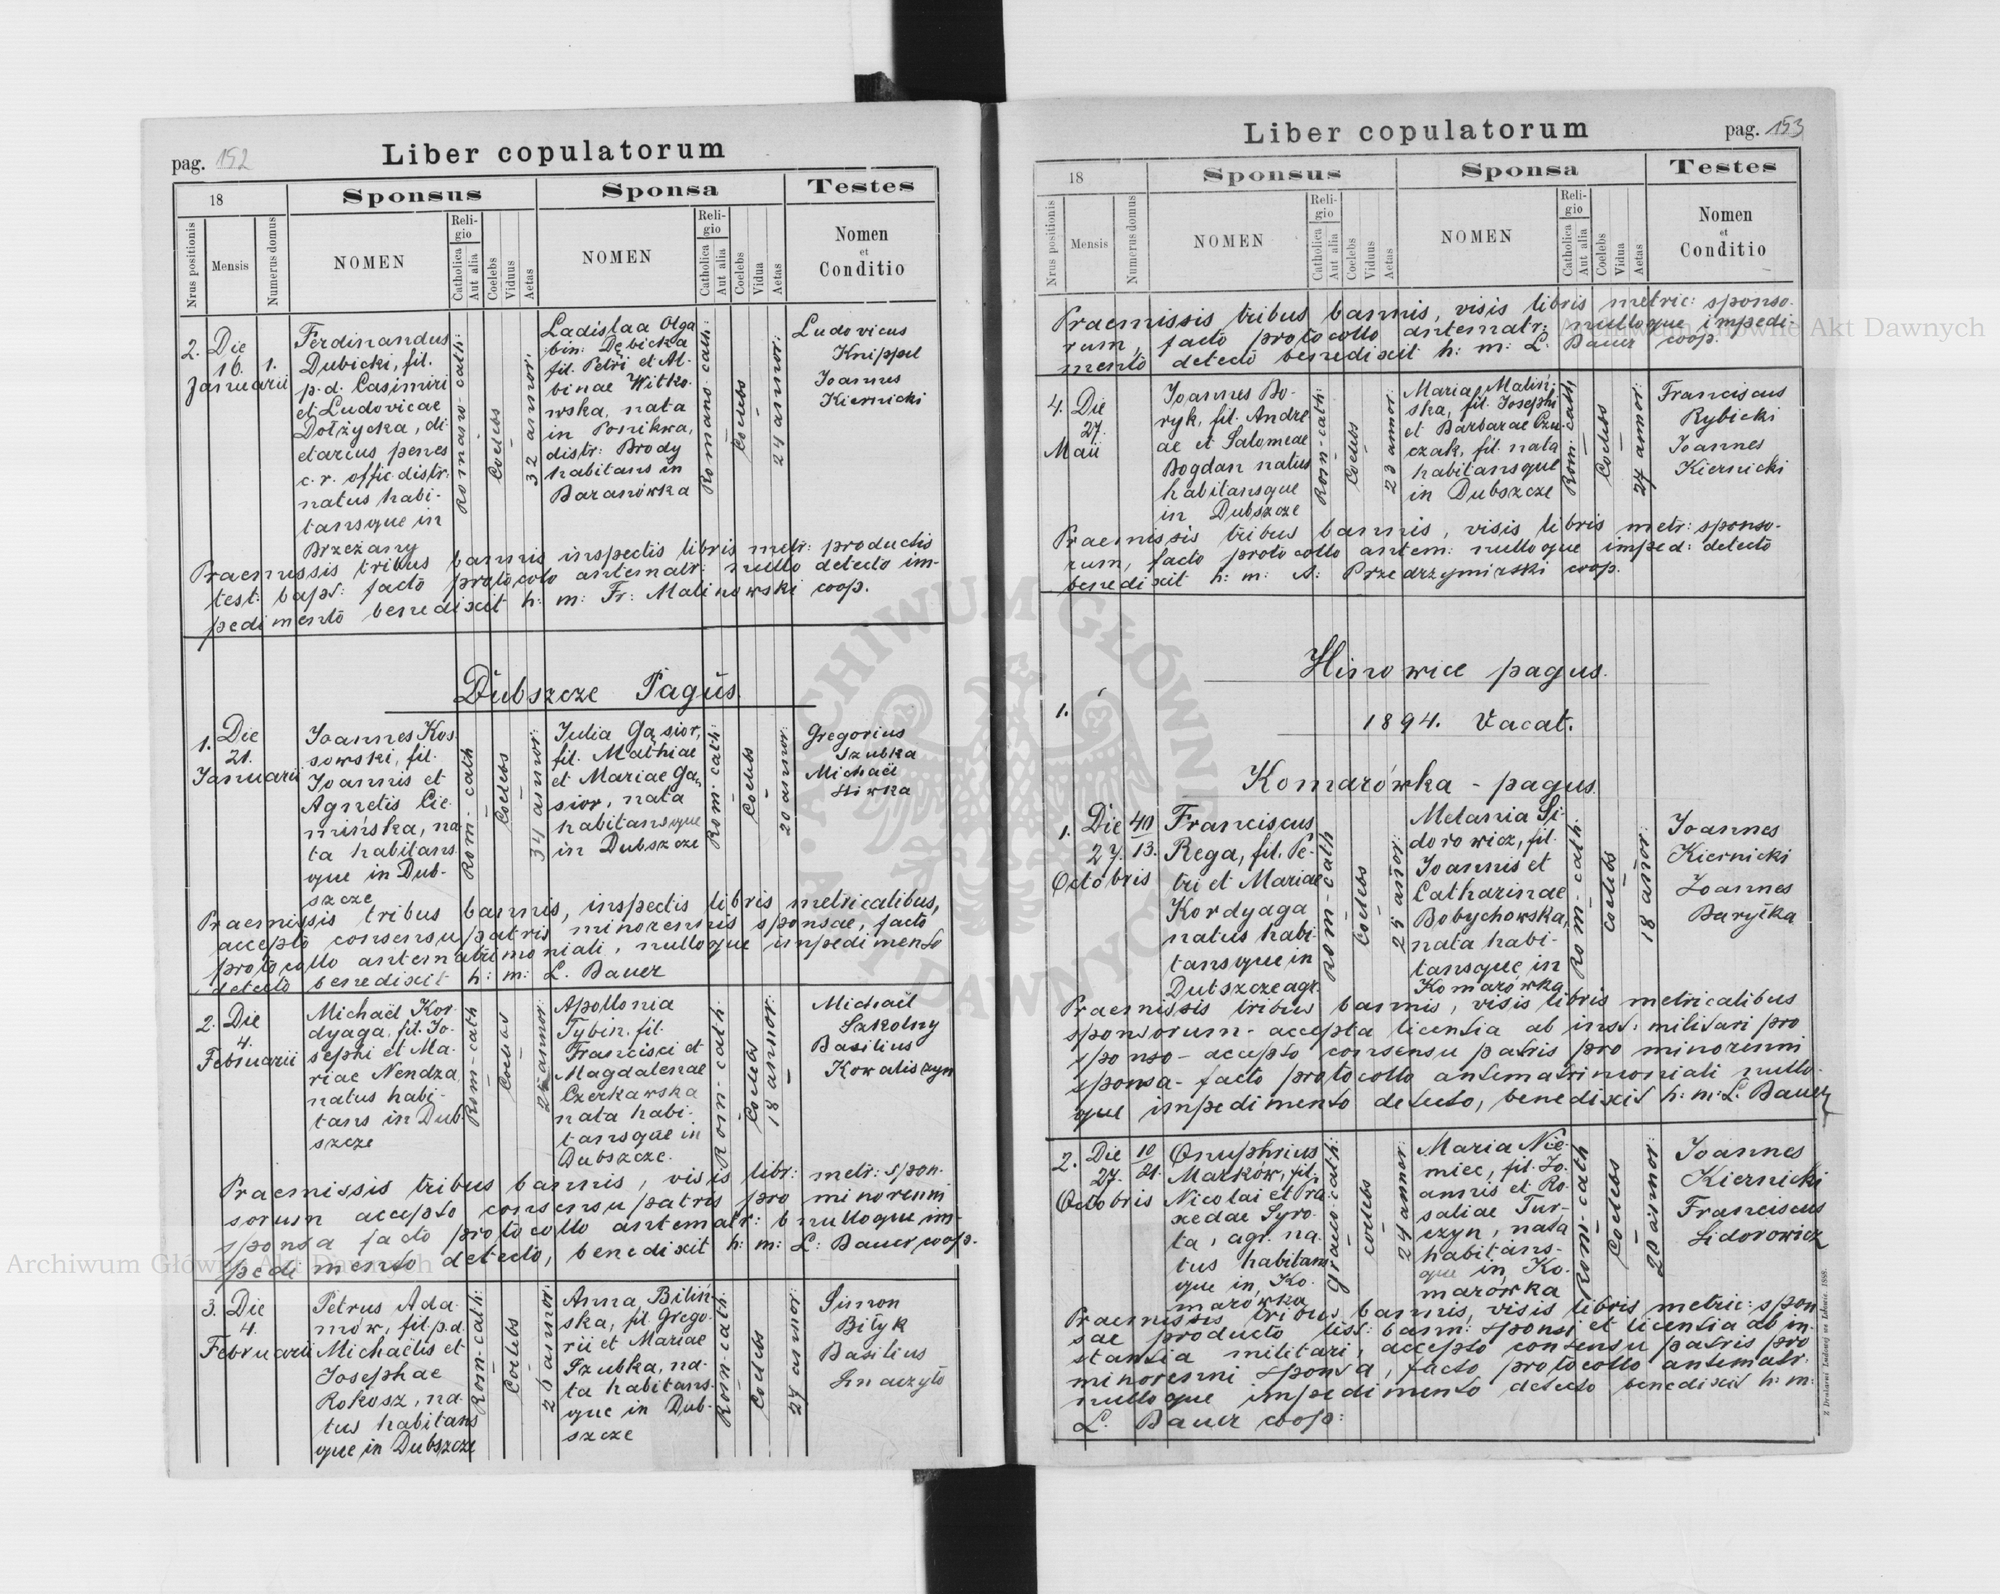 pag. 152
Liber copulatorum
18
Sponsus
Sponsa
Testes
Nrus positionis
Mensis
Numerus domus
NOMEN
Religio
Catholica
Aut alia
Coelebs
Viduus
Aetas
NOMEN
Religio
Catholica
Aut alia
Coelebs
Vidua
Aetas
Nomen
et
Conditio
2. Die
16. 1.
Januarii
Ferdinandus
Dubicki, fil.
p. d. Casimiri
et Ludovicae
Dołżycka, di-
etarius penes
c. r. offic. distr.
natus habi-
tansque in
Brzeżany
Romano-cath:
Coelebs
32 annor.
Ladislaa Olga
bin: Dębicka
fil. Petri et Al-
binae Witko-
wska, nata
in Ponikwa,
distr: Brody
habitans in
Baranówka
Romano-cath:
Coelebs
24 annor:
Ludovicus
Knippel
Joannes
Kiernicki
Praemissis tribus bannis inspectis libris metr: productis
test: bapt: facto protocolo antematr: nullo detecto im-
pedimento benedixit h: m: Fr: Malinowski coop.
Dubszcze Pagus.
1. Die
21.
Januarii
Joannes Kos-
sowski, fil.
Joannis et
Agnetis Cie-
mińska, na-
ta habitans
que in Dub-
szcze
Rom-cath
Coelebs
34 annor:
Julia Gąsior,
fil. Mathiae
et Mariae Gą-
sior, nata
habitansque
in Dubszcze
Rom-cath:
Coelebs
20 annor:
Gregorius
Szubka
Michaël
Hirka
Praemissis tribus bannis, inspectis libris metricalibus,
accepto consensu patris minorennis sponsae, facto
protocollo antematrimoniali, nulloque impedimento
detecto benedixit h: m: L. Bauer
2. Die
4.
Februarii
Michaël Kor-
dyaga, fil. Jo-
sephi et Ma-
riae Nendza
natus habi-
tans in Dub
szcze
Rom-cath
Coelebs
annor:
Apollonia
Tybin, fil.
Francisci et
Magdalenae
Czerkawska
nata habi-
tansque in
Dubszcze.
Rom-cath:
Coelebs
18 annor:
Michaël
Sakolny
Basilius
Kowaliszyn
Praemissis tribus bannis, visis libr: metr: spon-
sorum accepto consensu patris pro minorenni
sponsa facto protocollo antematr: nulloque im-
pedimento detecto, benedixit h: m: L: Bauer coop.
3. Die
4.
Februarii
Petrus Ada-
mów, fil. p. d.
Michaëlis et
Josephae
Rokosz, na-
tus habitans
que in Dubszcze
Rom-cath:
Coelebs
26 annor:
Anna Biliń-
ska, fil. Grego-
rii et Mariae
Szubka, na-
ta habitans-
que in Dub-
szcze
Rom-cath.
Coelebs
24 annor:
Simon
Biłyk
Basilius
Hnaczyło
Liber copulatorum
pag. 153
18
Sponsus
Sponsa
Testes
Nrus positionis
Mensis
Numerus domus
NOMEN
Religio
Catholica
Aut alia
Coelebs
Viduus
Aetas
NOMEN
Religio
Catholica
Aut alia
Coelebs
Vidua
Aetas
Nomen
et
Conditio
Praemissis tribus bannis, visis libris metric: sponso-
rum, facto protocollo antematr: nulloque impedi-
mento detecto benedixit h: m: L. Bauer coop.
4. Die
27.
Maii
Joannes Bo-
ryk, fil. Andre
ae et Salomeae
Bogdan natus
habitansque
in Dubszcze
Rom-cath:
Coelebs
23 annor:
Maria Maliń-
ska, fil. Josephi
et Barbarae Czu-
czak, fil. nata
habitansque
in Dubszcze
Rom: cath
Coelebs
24 annor:
Franciscus
Rybicki
Joannes
Kiernicki
Praemissis tribus bannis, visis libris metr: sponso-
rum, facto protocollo antem: nulloque imped: detecto
benedixit h: m: A: Przedrzymirski coop.
Hinowice pagus.
1.
1894. Vacat.
Komarówka - pagus
1. Die 40
27. 13.
Octobris
Franciscus
Rega, fil. Pe-
tri et Mariae
Kordyaga
natus habi-
tansque in
Dubszcze agr.
Rom-cath
Coelebs
25 annor:
Melania Si-
dorowicz, fil.
Joannis et
Catharinae
Bobychowska,
nata habi-
tansque in
Komarówka
Rom-cath:
Coelebs
18 annor:
Joannes
Kiernicki
Joannes
Baryłka
Praemissis tribus bannis, visis libris metricalibus
sponsorum - accepta licentia ab inst: militari pro
sponso - accepto consensu patris pro minorenni
sponsa - facto protocollo antematrimoniali nullo-
que impedimento detecto, benedixit h: m: L. Bauer
2. Die 10
27. 21.
Octobris
Onuphrius
Marków, fil.
Nicolai et Pra-
xedae Syro-
ta, agr. na-
tus habitans
que in Ko-
marówka
Graeco-cath:
coelebs
24 annor:
Maria Nie-
miec, fil. Jo-
annis et Ro-
saliae Tur-
czyn, nata
habitans-
que in Ko-
marówka
Rom-cath
Coelebs
20 annor:
Joannes
Kiernicki
Franciscus
Sidorowicz
Praemissis tribus bannis, visis libris metric: spon
sae producto test: bann: sponsi et licentia ab in-
stantia militari, accepto consensu patris pro
minorenni sponsa, facto protocollo antematr.
nulloque impedimento detecto benedixit h: m:
L. Bauer coop:
Z Drukarni Ludowej we Lwowie. 1888.
Archiwum Główne Akt Dawnych
Archiwum Główne Akt Dawnych
ARCHIWUM GŁÓWNE AKT DAWNYCH